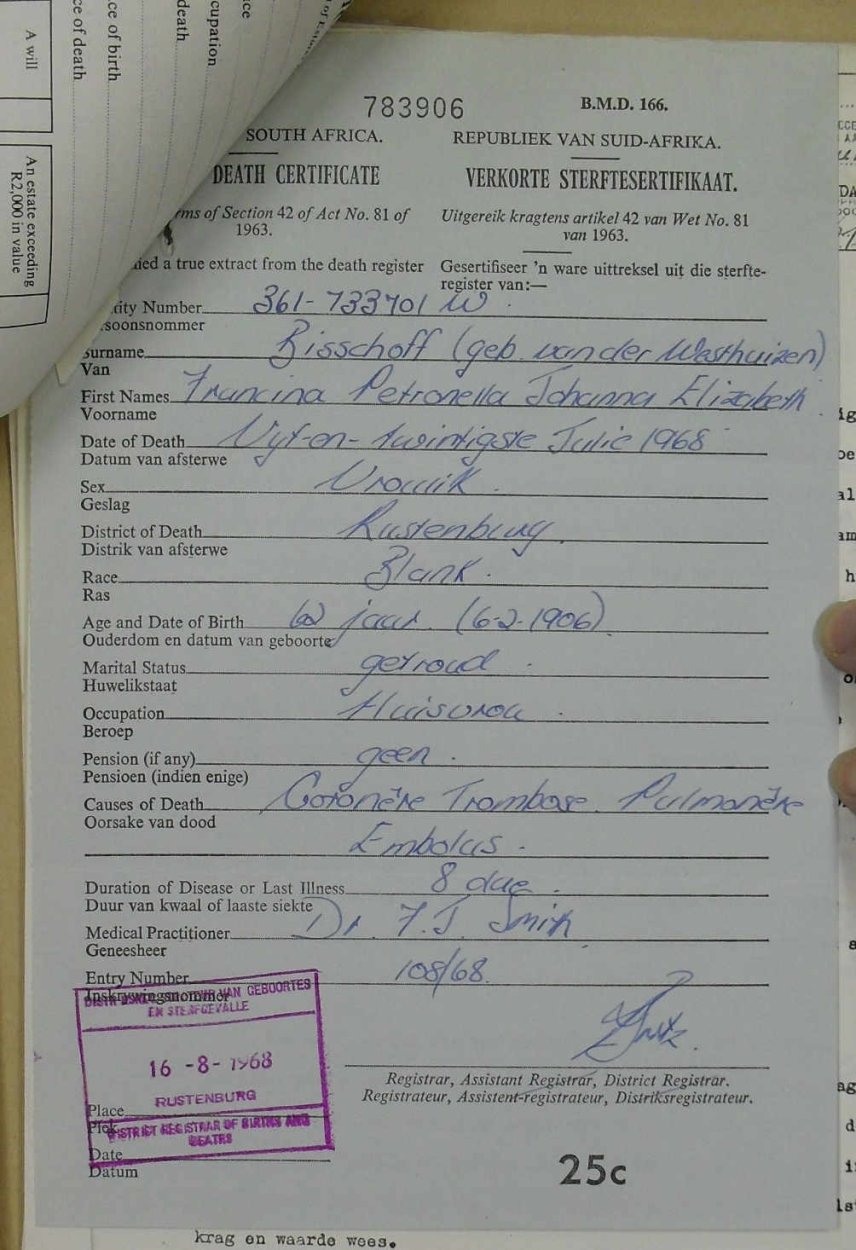 A will
An estate exceeding
R2,000 in value
ce of death
ce of birth
death
cupation
ice
783906
B.M.D. 166.
SOUTH AFRICA.
REPUBLIEK VAN SUID-AFRIKA.
DEATH CERTIFICATE
VERKORTE STERFTESERTIFIKAAT.
rms of Section 42 of Act No. 81 of
1963.
Uitgereik kragtens artikel 42 van Wet No. 81
van 1963.
ied a true extract from the death register
Gesertifiseer 'n ware uittreksel uit die sterfte-
register van:—
tity Number 361-733701 W
soonsnommer
Surname Bisschoff (geb. van der Westhuizen)
Van
First Names Francina Petronella Johanna Elizabeth
Voorname
Date of Death Vyf-en-twintigste Julie 1968
Datum van afsterwe
Sex Vroulik
Geslag
District of Death Rustenburg.
Distrik van afsterwe
Race Blank.
Ras
Age and Date of Birth 62 jaar (6-2-1906)
Ouderdom en datum van geboorte
Marital Status getroud
Huwelikstaat
Occupation Huisvrou
Beroep
Pension (if any) geen.
Pensioen (indien enige)
Causes of Death Coronêre Trombose. Pulmonêre
Oorsake van dood
Embolus.
Duration of Disease or Last Illness 8 dae.
Duur van kwaal of laaste siekte
Medical Practitioner Dr. F. J. Smith
Geneesheer
Entry Number 108/68.
Inskrywingsnommer
VAN GEBOORTES
EN STERFGEVALLE
16 -8- 1968
RUSTENBURG
Place
Plek
DISTRICT REGISTRAR OF BIRTHS AND
DEATHS
Date
Datum
Registrar, Assistant Registrar, District Registrar.
Registrateur, Assistent-registrateur, Distriksregistrateur.
25c
krag en waarde wees.